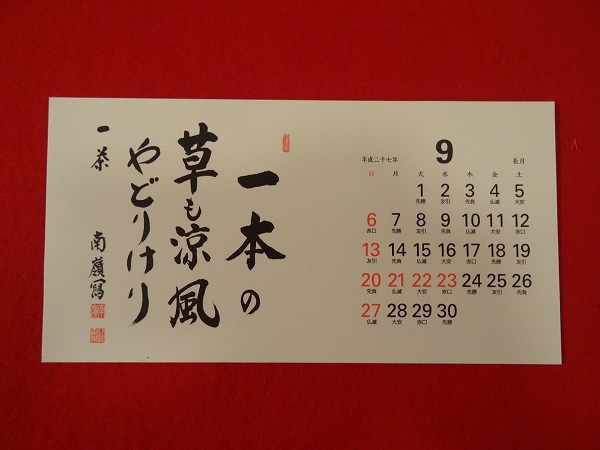 一本の
草も涼風
やどりけり
一茶
南嶺寫
平成二十七年 9 長月
日 月 火 水 木 金 土
1 2 3 4 5
先勝 友引 先負 仏滅 大安
6 7 8 9 10 11 12
赤口 先勝 友引 先負 仏滅 大安 赤口
13 14 15 16 17 18 19
友引 先負 仏滅 大安 赤口 先勝 友引
20 21 22 23 24 25 26
先負 仏滅 大安 赤口 先勝 友引 先負
27 28 29 30
仏滅 大安 赤口 先勝